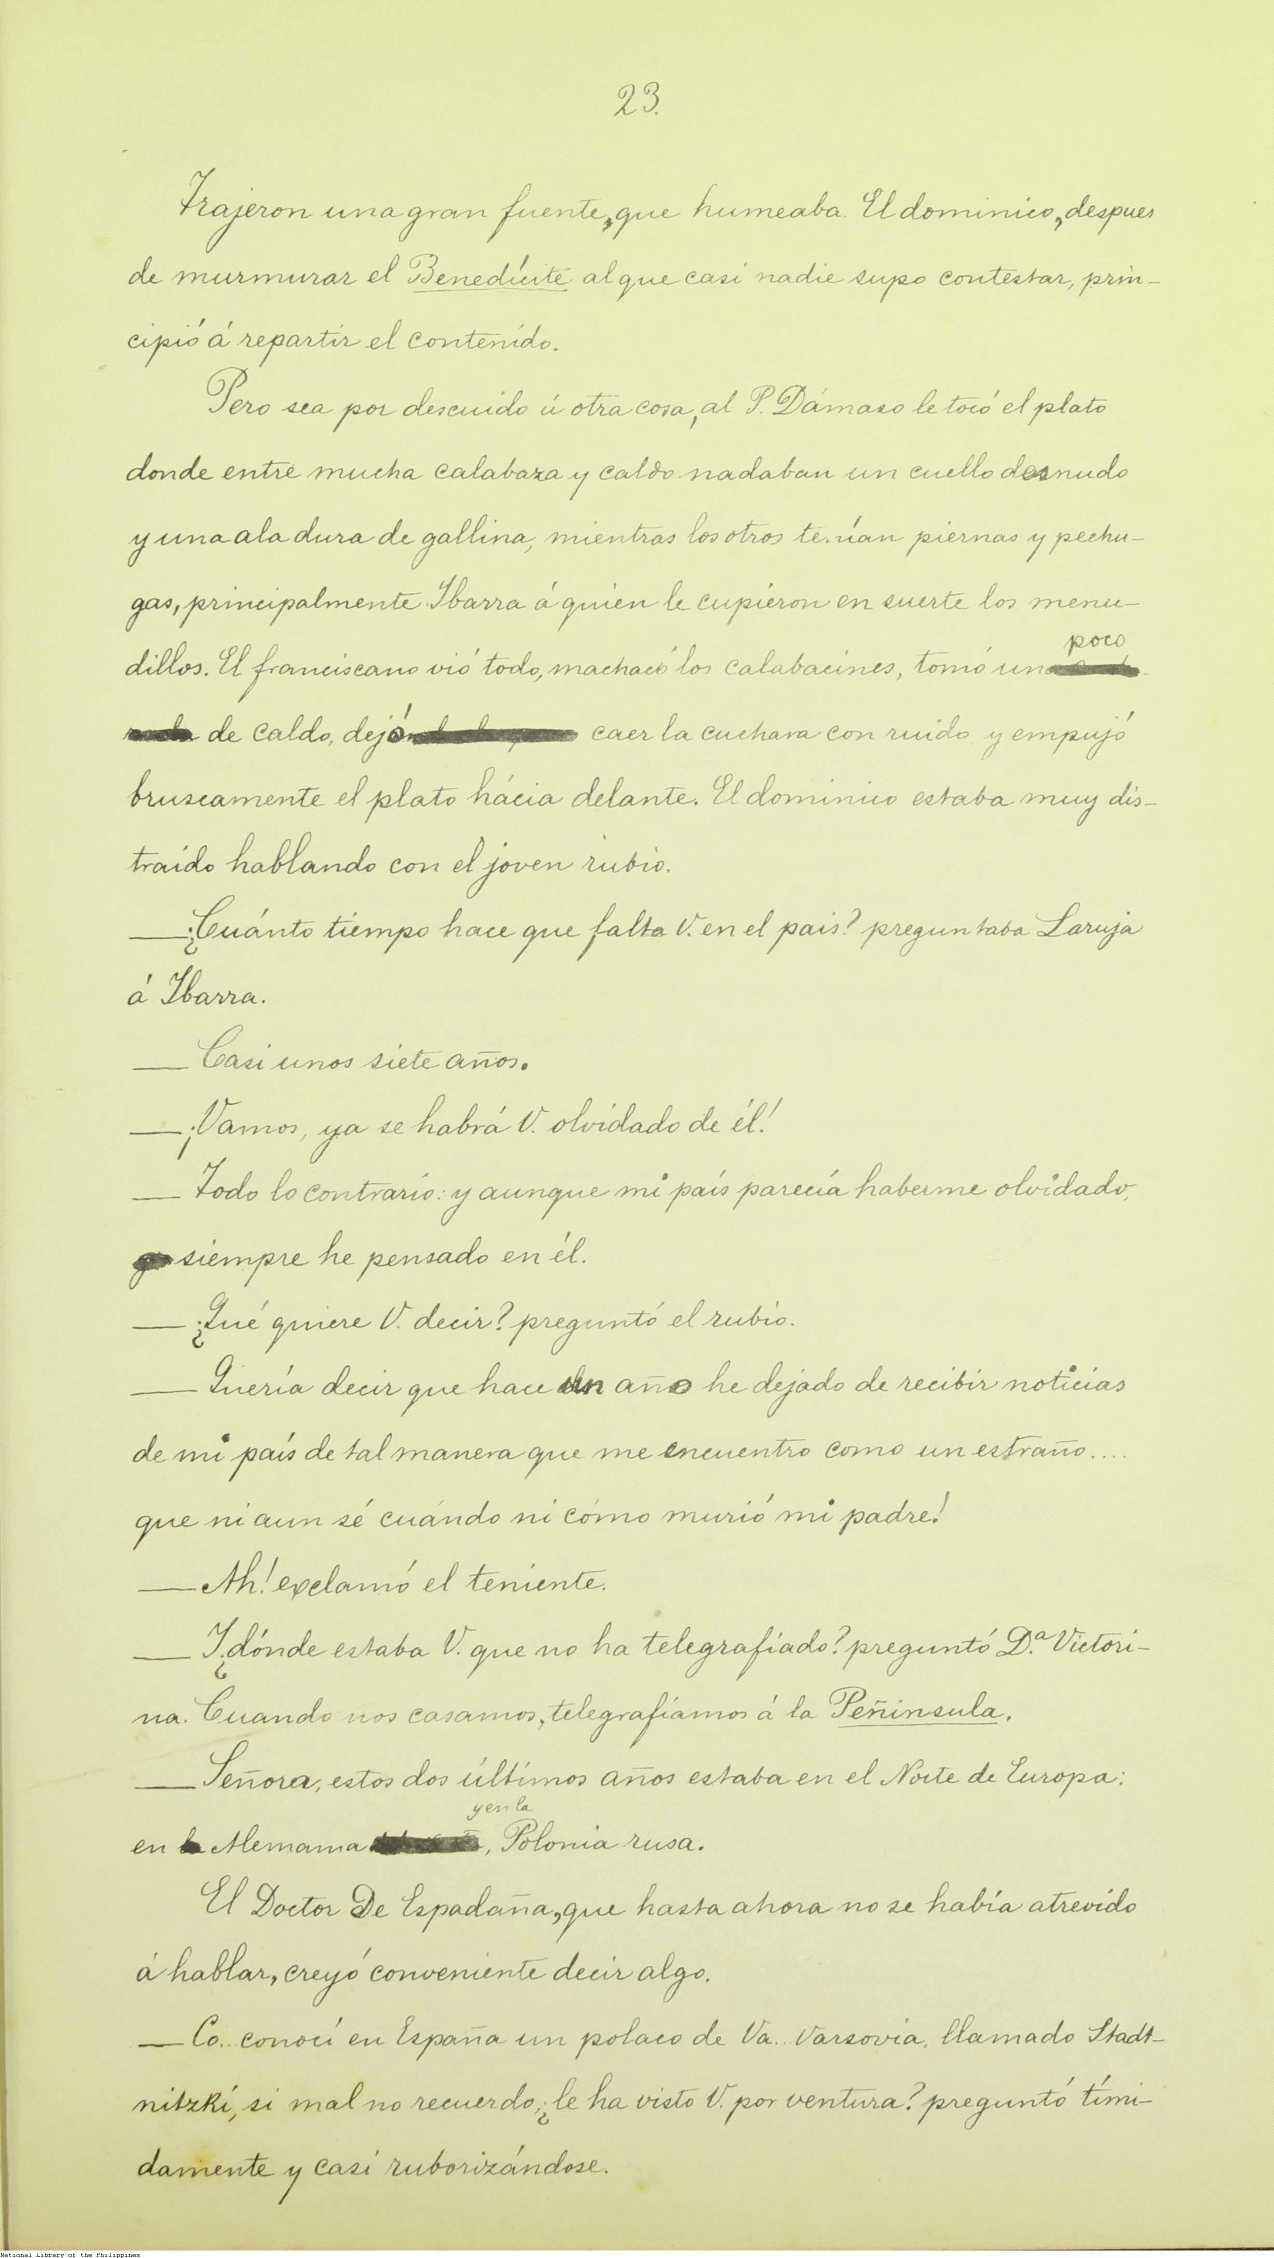 23.
Trajeron una gran fuente, que humeaba. El dominico, despues
de murmurar el Benedícite al que casi nadie supo contestar, prin-
cipió á repartir el contenido.
Pero sea por descuido ú otra cosa, al P. Dámaso le tocó el plato
donde entre mucha calabaza y caldo nadaban un cuello desnudo
y una ala dura de gallina, mientras los otros tenían piernas y pechu-
gas, principalmente Ibarra á quien le cupieron en suerte los menu-
dillos. El franciscano vió todo, machacó los calabacines, tomó un poco
de caldo, dejó caer la cuchara con ruido y empujó
bruscamente el plato hácia delante. El dominico estaba muy dis-
traido hablando con el joven rubio.
— ¿Cuánto tiempo hace que falta V. en el pais? preguntaba Laruja
á Ibarra.
— Casi unos siete años.
— ¡Vamos, ya se habrá V. olvidado de él!
— Todo lo contrario: y aunque mi país parecía haberme olvidado,
siempre he pensado en él.
— ¿Qué quiere V. decir? preguntó el rubio.
— Quería decir que hace un año he dejado de recibir noticias
de mi país de tal manera que me encuentro como un estraño....
que ni aun sé cuándo ni cómo murió mi padre!
— Ah! exclamó el teniente.
— Y ¿dónde estaba V. que no ha telegrafiado? preguntó D.ª Victori-
na. Cuando nos casamos, telegrafíamos á la Peñinsula.
— Señora, estos dos últimos años estaba en el Norte de Europa:
en Alemania y en la, Polonia rusa.
El Doctor De Espadaña, que hasta ahora no se había atrevido
á hablar, creyó conveniente decir algo.
— Co.. conocí en España un polaco de Va.. Varsovia, llamado Stadt-
nitzki, si mal no recuerdo, ¿le ha visto V. por ventura? preguntó tími-
damente y casi ruborizándose.
National Library of the Philippines